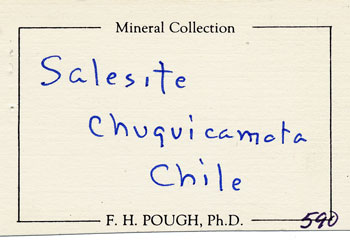 Mineral Collection
Salesite
Chuquicamata
Chile
F. H. POUGH, Ph.D.
590